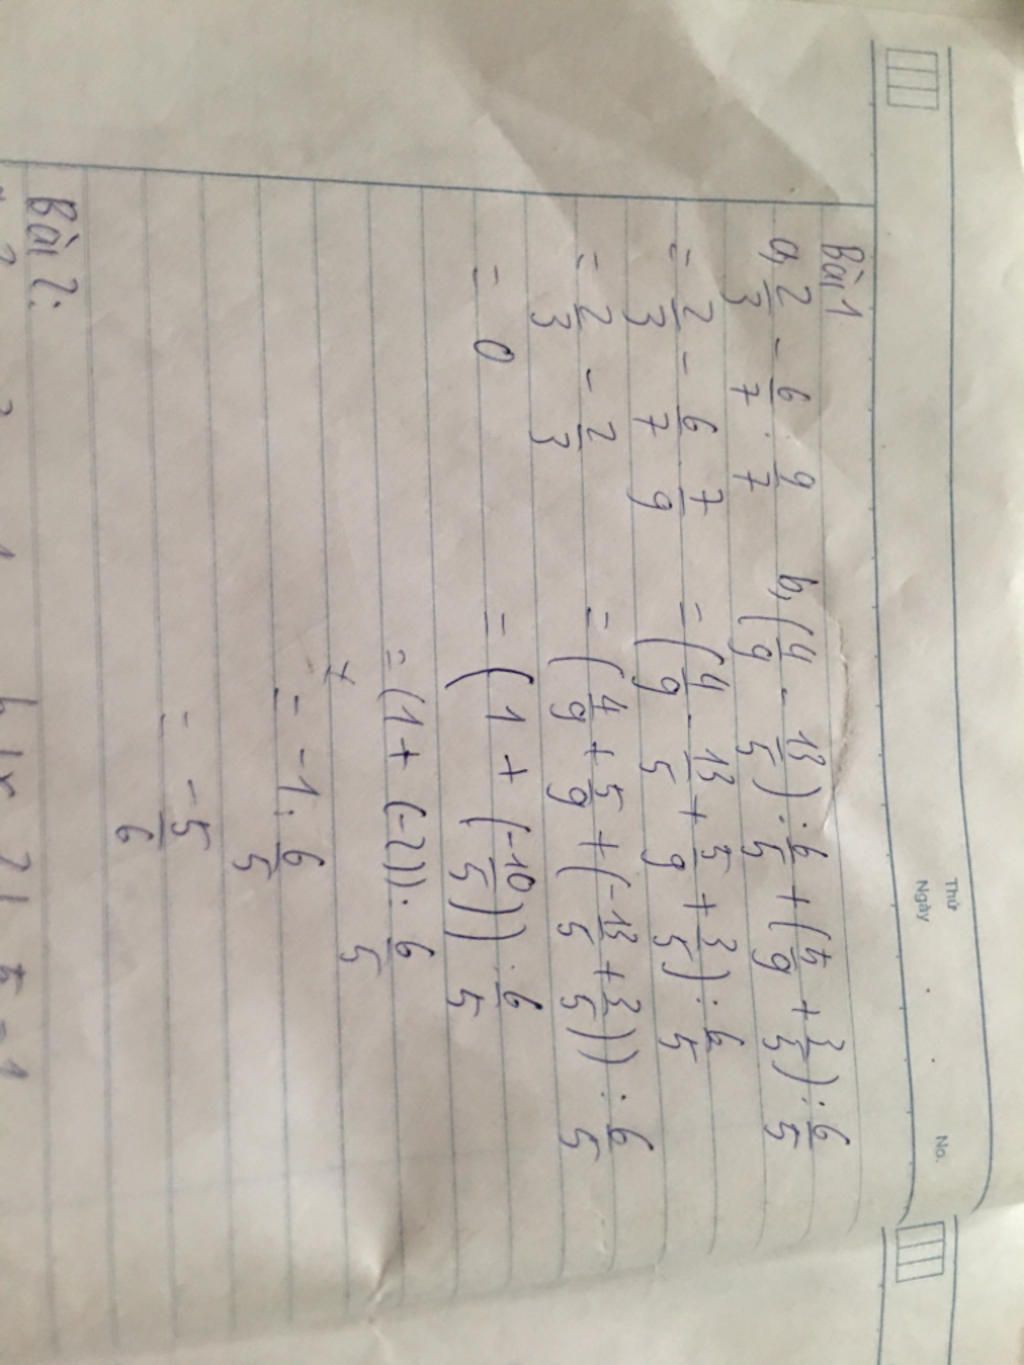 Thứ
Ngày . . No.
Bài 1
a, 2/3 - 6/7 : 9/7
= 2/3 - 6/7 . 7/9
= 2/3 - 2/3
= 0
b, (4/9 - 13/5) : 6/5 + (5/9 + 3/5) : 6/5
= (4/9 - 13/5 + 5/9 + 3/5) : 6/5
= (4/9 + 5/9 + (-13/5 + 3/5)) : 6/5
= (1 + (-10/5)) : 6/5
= (1 + (-2)) : 6/5
= -1 : 6/5
= -5/6
Bài 2: